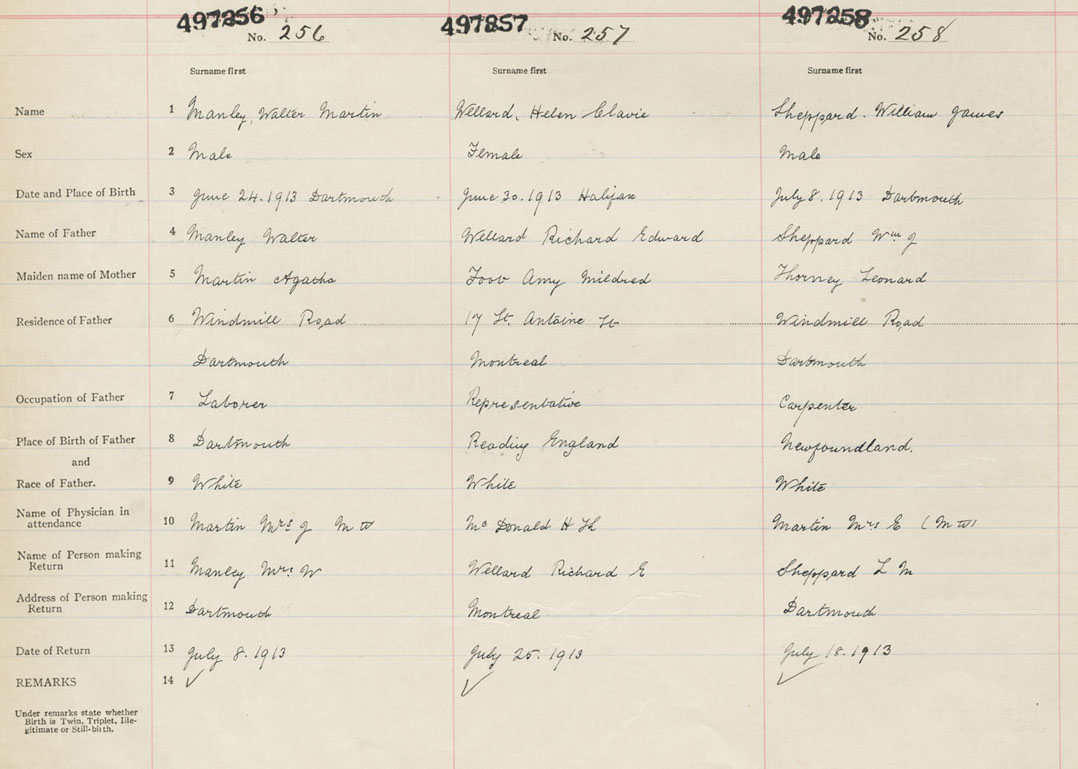 497256 497257 497258
No. 256 No. 257 No. 258
Surname first Surname first Surname first
Name 1 Manley, Walter Martin Wellard, Helen Clavie Sheppard. William James
Sex 2 Male Female Male
Date and Place of Birth 3 June 24.1913 Dartmouth June 30.1913 Halifax July 8.1913 Dartmouth
Name of Father 4 Manley Walter Wellard Richard Edward Sheppard Wm J
Maiden name of Mother 5 Martin Agatha Amy Mildred Thorney Leonard
Residence of Father 6 Windmill Road 17 St. Antoine St Windmill Road
Dartmouth Montreal Dartmouth
Occupation of Father 7 Laborer Representative Carpenter
Place of Birth of Father 8 Dartmouth Reading England Newfoundland.
and
Race of Father. 9 White White White
Name of Physician in
attendance 10 Martin Mrs J M W Mc Donald H Martin Mrs E (M W)
Name of Person making
Return 11 Manley Mrs W Wellard Richard E Sheppard L M
Address of Person making
Return 12 Dartmouth Montreal Dartmouth
Date of Return 13 July 8.1913 July 25.1913 July 18.1913
REMARKS 14 ✓ ✓ ✓
Under remarks state whether
Birth is Twin, Triplet, Ille-
gitimate or Still-birth.